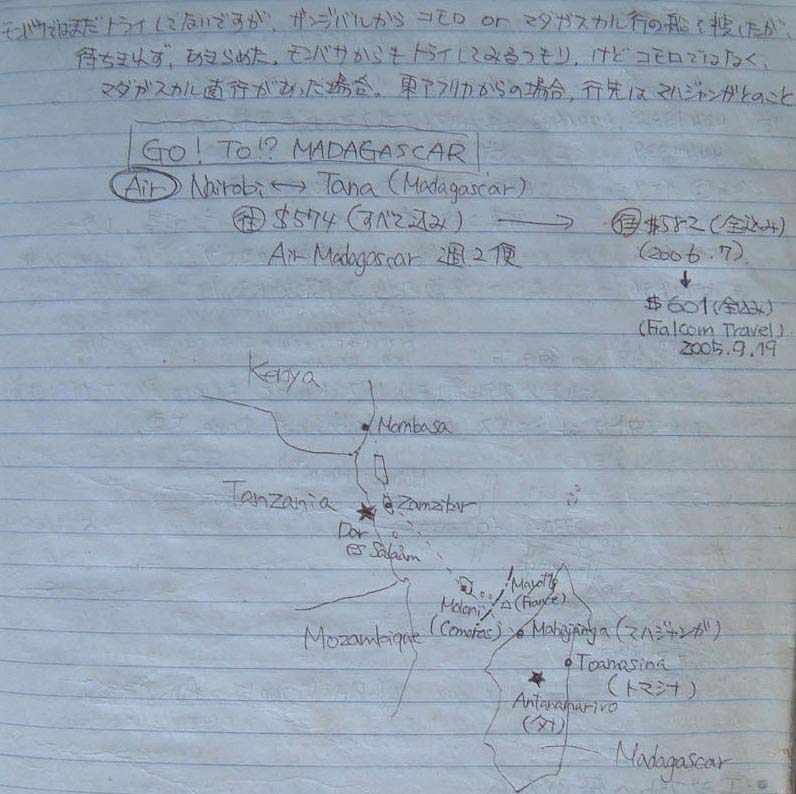 モンバサではまだトライしてないですが、ザンジバルから コモロ or マダガスカル行の船を捜したが、
待ちきれず、あきらめた。モンバサからもトライしてみるつもり。けどコモロではなく、
マダガスカル直行があった場合。東アフリカからの場合、行先はマハジャンガとのこと
GO! TO!? MADAGASCAR
Air Nairobi ↔ Tana (Madagascar)
往 $574 (すべて込み) → 往 $582 (全込み)
(2006.7)
Air Madagascar 週2便
↓
$601 (全込み)
(Fialcom Travel)
2005.9.19
Kenya
Mombasa
Tanzania
Zanzibar
Dar
es Salaam
Mayotte
(France)
Moloni
(Comoros)
Mozambique
Mahajanga (マハジャンガ)
Toamasina
(トマシナ)
Antananarivo
(タナ)
Madagascar